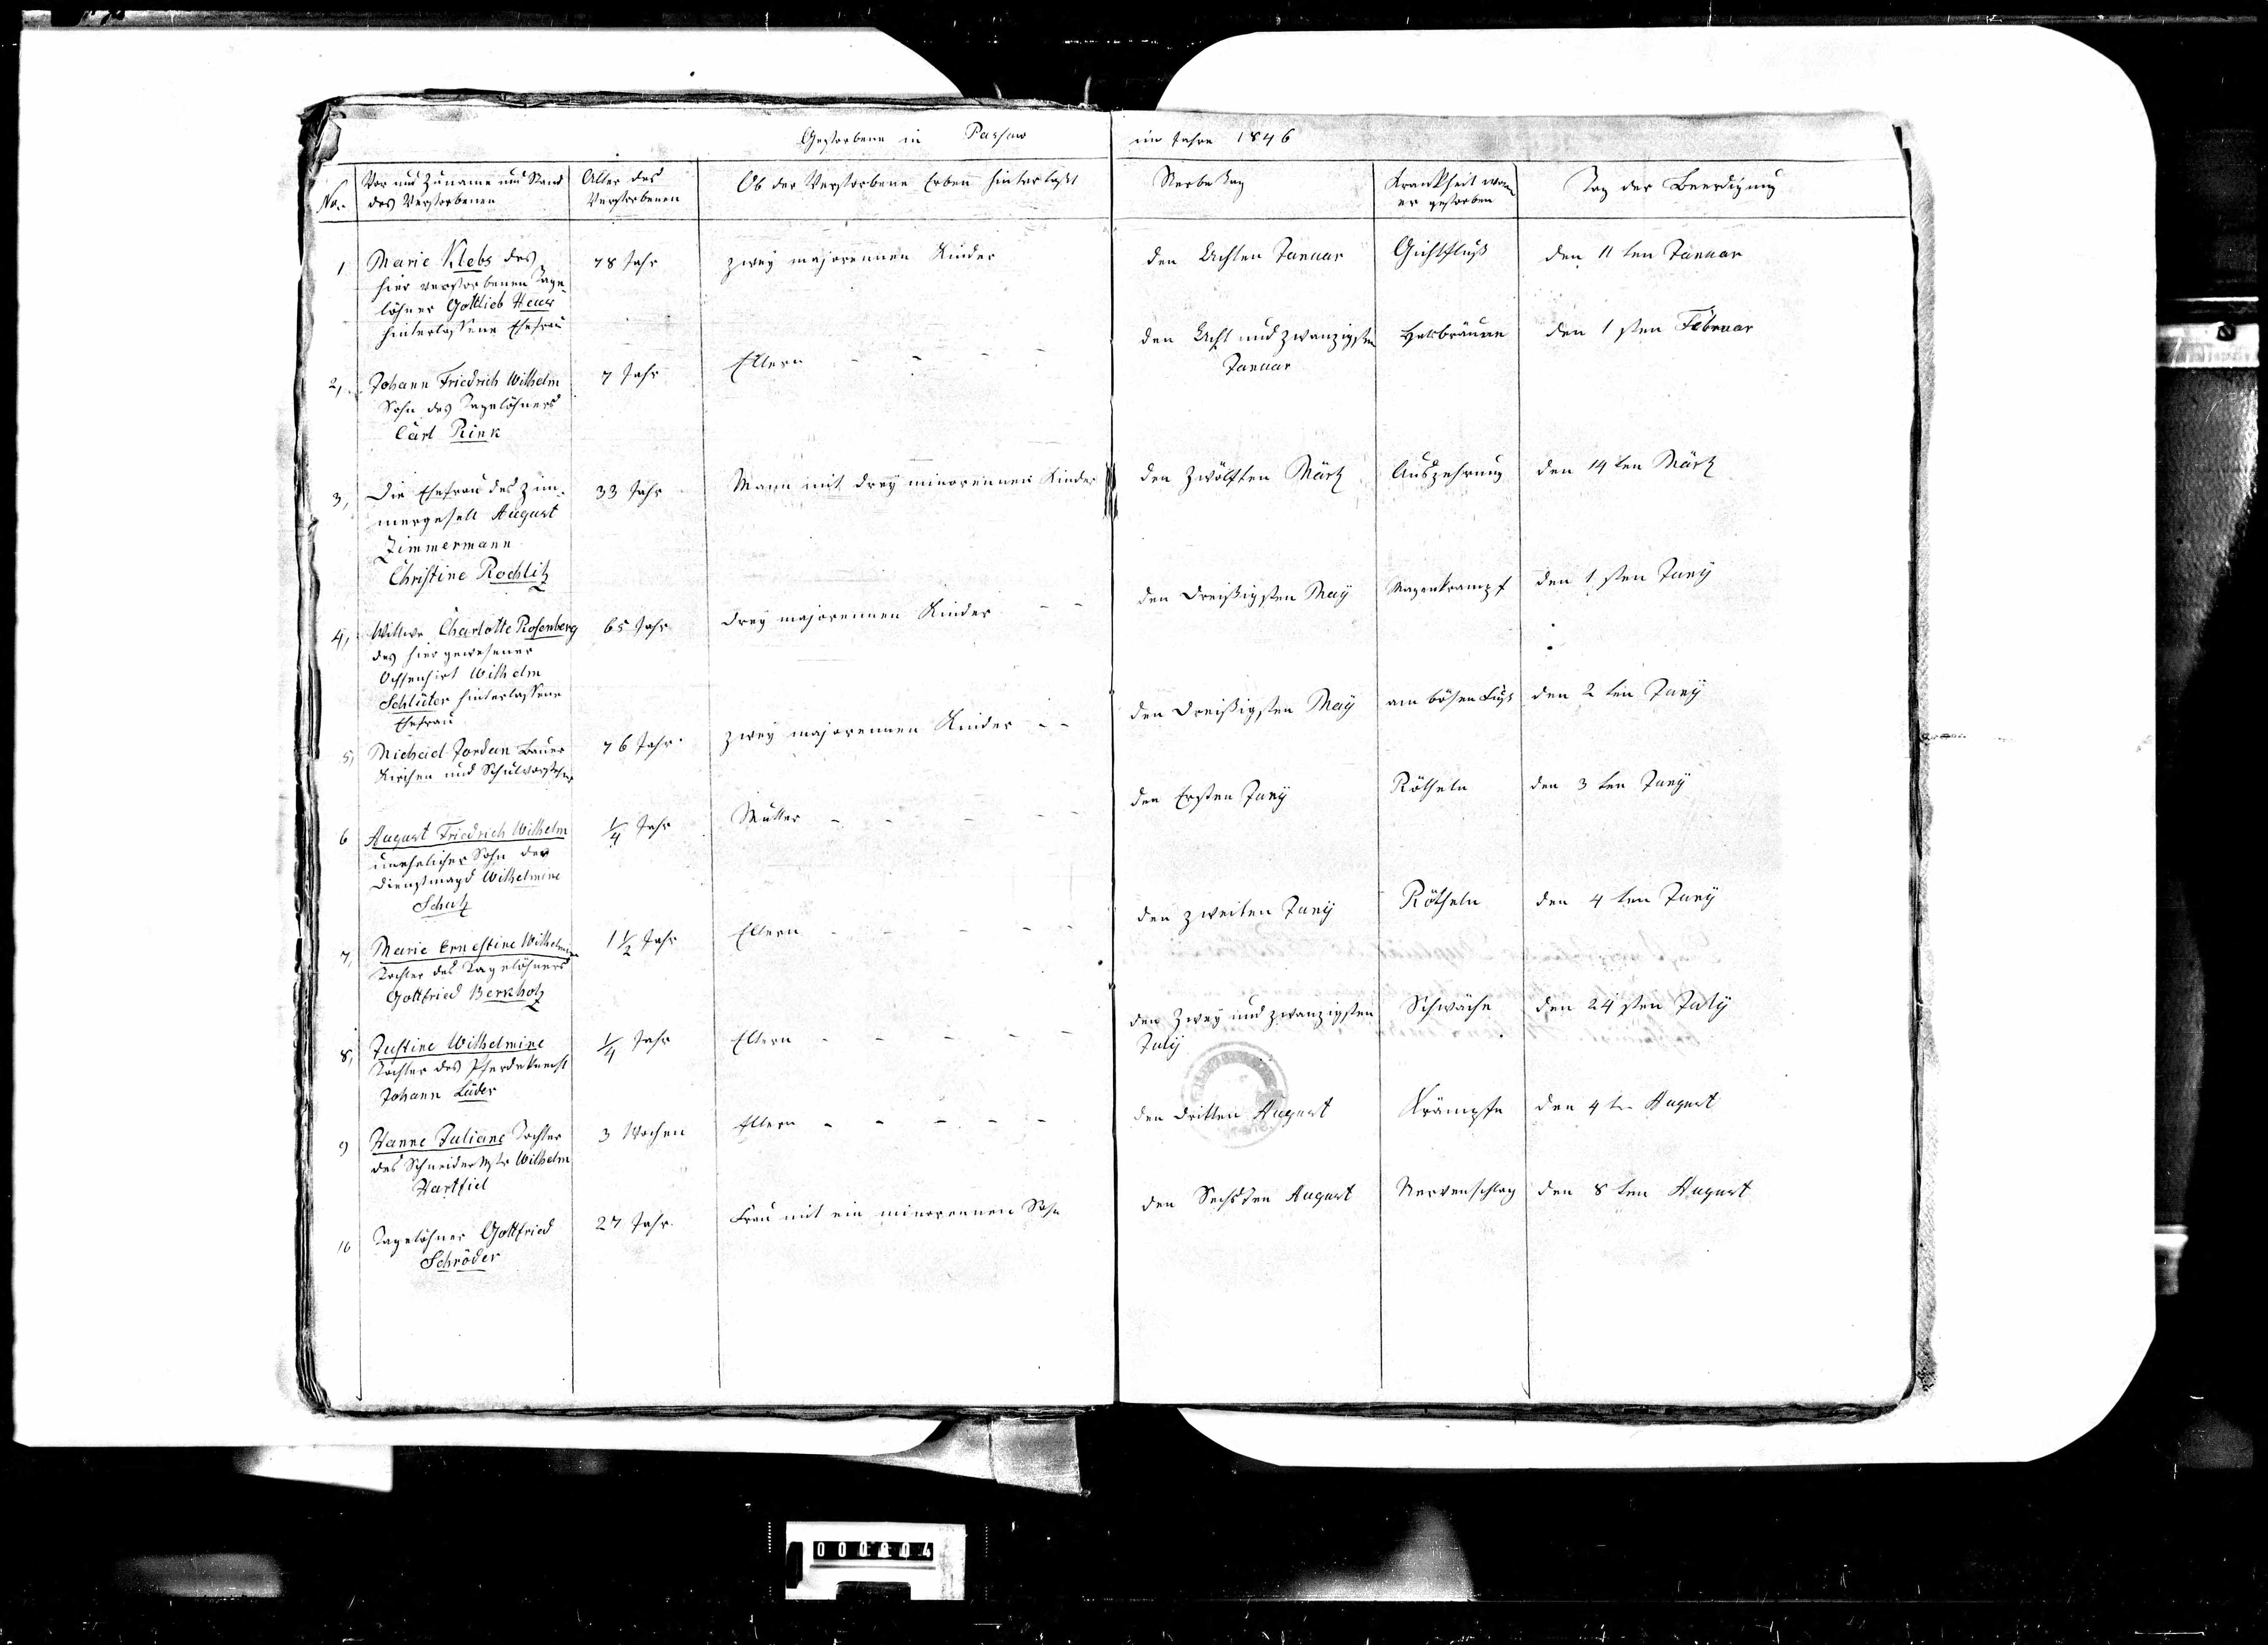 Gestorbene in Passow im Jahre 1846
No. Vor und Zuname und Stand des Verstorbenen
Alter des Verstorbenen
Ob der Verstorbene Erben hinterläßt
Sterbe Tag
Krankheit woran er gestorben
Tag der Beerdigung
1 Marie Klebs des
hier verstorbenen Tage-
löhner Gottlieb
hinterlassene Ehefrau
78 Jahr
zwey majorennen Kinder
den Achten Januar
Gichtfluß
den 11 ten Januar
2, Johann Friedrich Wilhelm
Sohn des Tagelöhners
Carl Rink
7 Jahr
Eltern - - - -
den Acht und zwanzigsten
Januar
Halsbräune
den 1 sten Februar
3, Die Ehefrau des Zim-
mergesell August
Zimmermann
Christine Rochlitz
33 Jahr
Mann mit drey minorennen Kinder
den Zwölften Märtz
Auszehrung
den 14 ten Märtz
4, Wittwe Charlotte Rosenberg
des hier gewesener
Ochsenhirt Wilhelm
Schlüter hinterlassene
Ehefrau
65 Jahr
drey majorennen Kinder - -
den Dreißigsten May
Magenkrampf
den 1 sten Juny
5, Michael Jordan Bauer
Kirchen und Schulvorsteher
76 Jahr
zwey majorennen Kinder - -
den Dreißigsten May
am bösen Fuß
den 2 ten Juny
6 August Friedrich Wilhelm
unehelicher Sohn der
Dienstmagd Wilhelmine
Schutz
1/4 Jahr
Mutter - - - - -
den Ersten Juny
Rötheln
den 3 ten Juny
7, Marie Ernestine Wilhelmine
Tochter des Tagelöhners
Gottfried Berkholz
1 1/2 Jahr
Eltern - - - - -
den zweiten Juny
Rötheln
den 4 ten Juny
8, Justine Wilhelmine
Tochter des Pferdeknecht
Johann Lüder
1/4 Jahr
Eltern - - - - -
den Zwey und zwanzigsten
July
Schwäche
den 24 sten July
9 Hanne Juliane Tochter
des Schneider Mstr Wilhelm
Hartfiel
3 Wochen
Eltern - - - - -
den dritten August
Krämpfe
den 4 ten August
10 Tagelöhner Gottfried
Schröder
27 Jahr
Frau mit ein minorennen Sohn
den Sechsten August
Nervenschlag
den 8 ten August